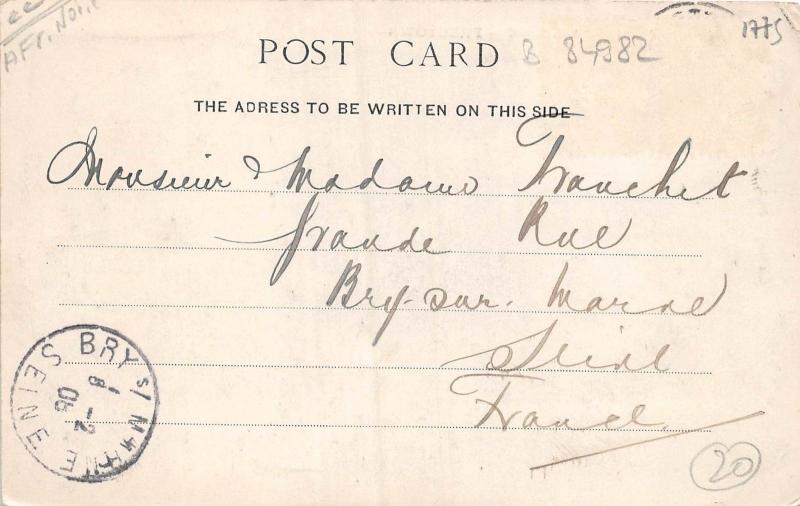 Afr. Noire
1775
POST CARD B 84982
THE ADRESS TO BE WRITTEN ON THIS SIDE
Monsieur & Madame Franchet
Grande Rue
Bry-sur-Marne
Seine
France
BRY s/ MARNE
SEINE
20